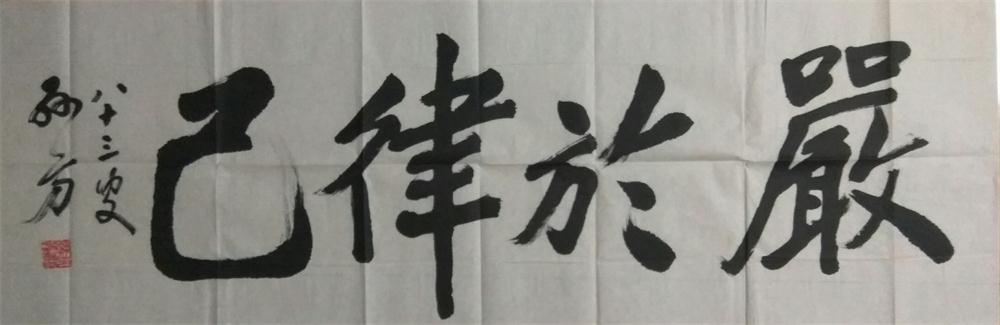 嚴於律己
八十三叟
孙方